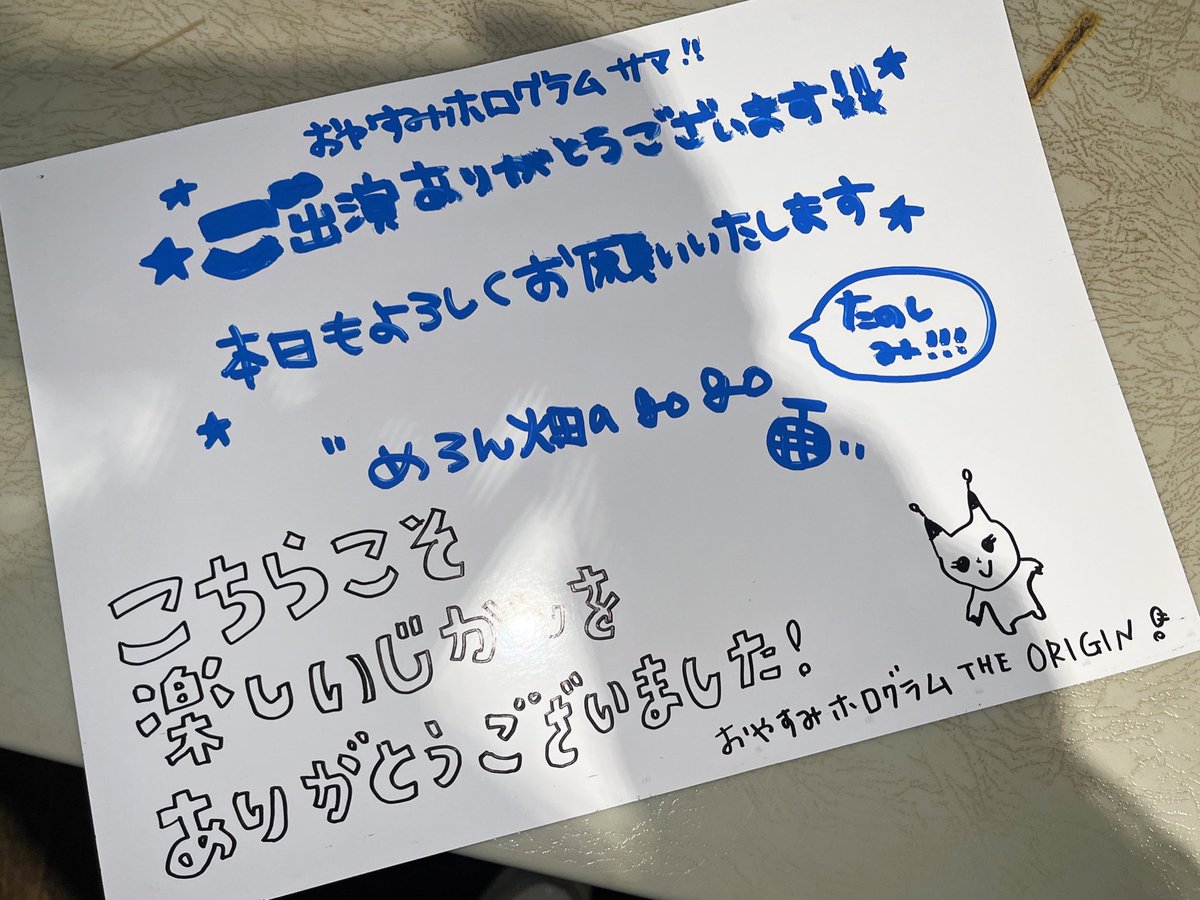 おやすみホログラムサマ!!
★ ★ご出演ありがとうございます!!★
本日もよろしくお願いいたします★
たのし
み!!!
★ "めろん畑a go go
こちらこそ
楽しいじかんを
ありがとうございました!
おやすみホログラム THE ORIGIN